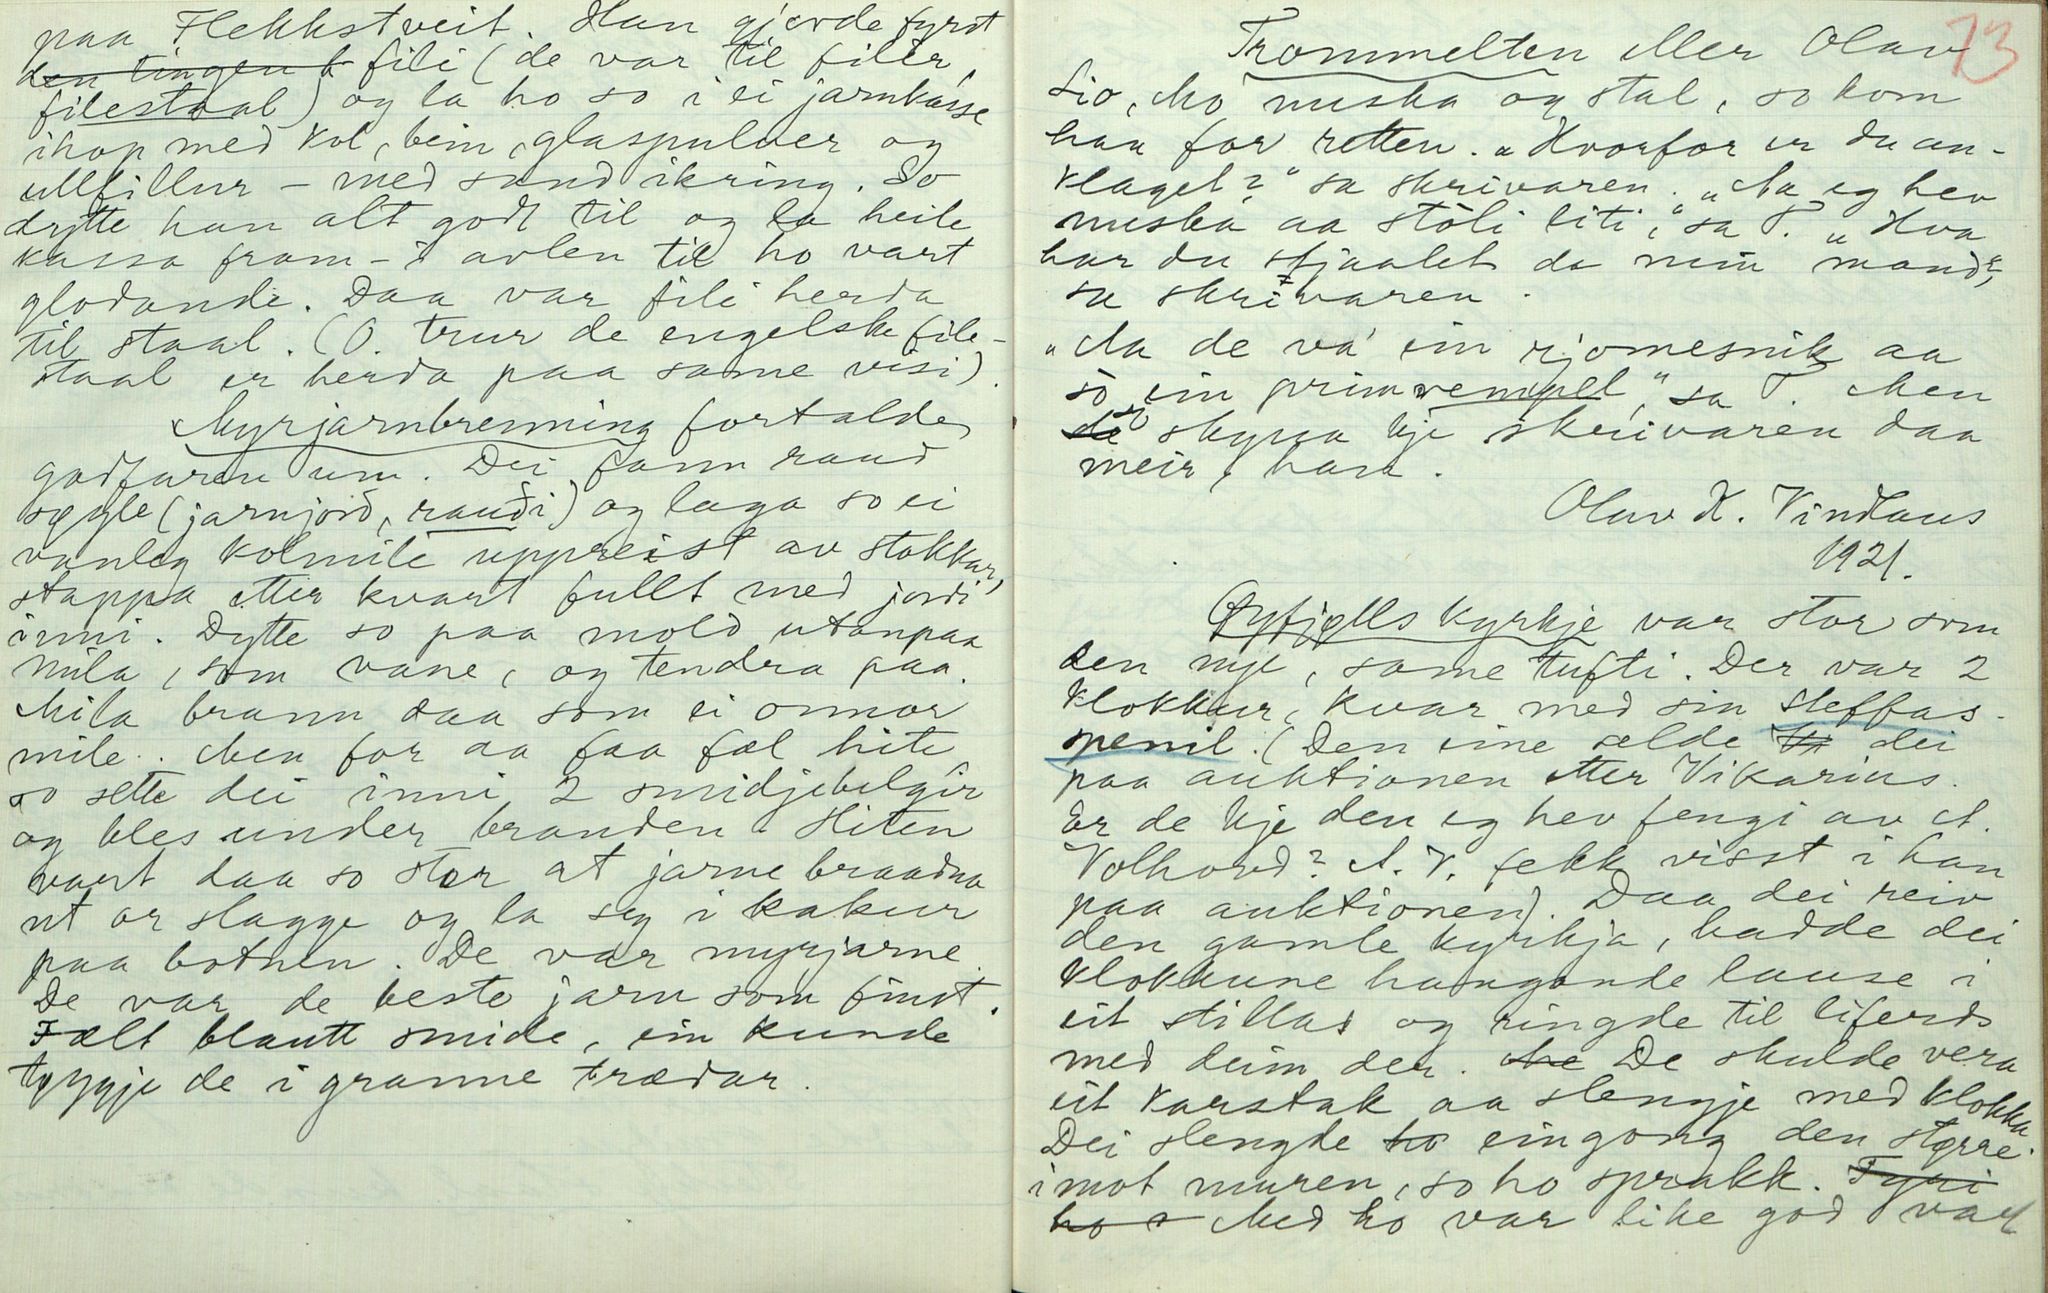 paa Flekkstveit. Han gjorde fyrst
den tingen fili (de var til filir,
filestaal) og la ho so i ei jarnkasse
ihop med kol, bein, glaspulver og
ullfillur - med sand ikring. So
dytte han alt godt til og la heile
kassa fram - i avlen til ho vart
glodande. Daa var fili herda
til staal. (O. trur de engelske file-
staal er herda paa same visi).
Myrjarnbrenning fortalde
godfaren um. Dei fann raud
søyle (jarnjord, raudi) og laga so ei
vanleg kolmile uppreist av stokkar,
stappa etter kvart fullt med jordi
inni. Dytte so paa mold utanpaa
mila, som vane, og tendra paa.
Mila brann daa som ei onnor
mile. Men for aa faa fæl hite,
so sette dei inni 2 smidjebelgir
og bles under branden. Hiten
vart daa so stor at jarne braadna
ut or slagge og la seg i kakur
paa botnen. De var myrjarne.
De var de beste jarn som finst.
Fælt blautt smide, ein kunde
tøyggje de i granne trædar.
73
Trommelten eller Olav
Lio, Mo nuska og stal, so kom
han for retten. "Hvorfor er du an-
klaget?" sa skrivaren. "Aa eg hev
nuska aa stòli liti," sa T. "Hva
har du stjaalet da min mand?"
sa skrivaren.
"Aa de va' ein rjomesnik aa
so ein primvempel," sa T. Men
de so skyna kje skrivaren daa
meir, han.
Olav K. Vindlaus
1921.
Øyfjølls kyrkje var stor som
den nye, same tufti. Der var 2
klokkur, kvar med sin steffas-
penil. (Den eine selde dei
paa auktionen etter Vikarius.
Er de kje den eg hev fengi av A.
Volhovd? A. V. fekk visst i han
paa auktionen). Daa dei reiv
den gamle kyrkja, hadde dei
klokkune hangande lause i
eit stillas og ringde til liferds
med deim der. De skulde vera
eit karstak aa slengje med klokka.
Dei slengde ho eingong den større
imot muren, so ho sprakk. Fyri
ho Med ho var like god var